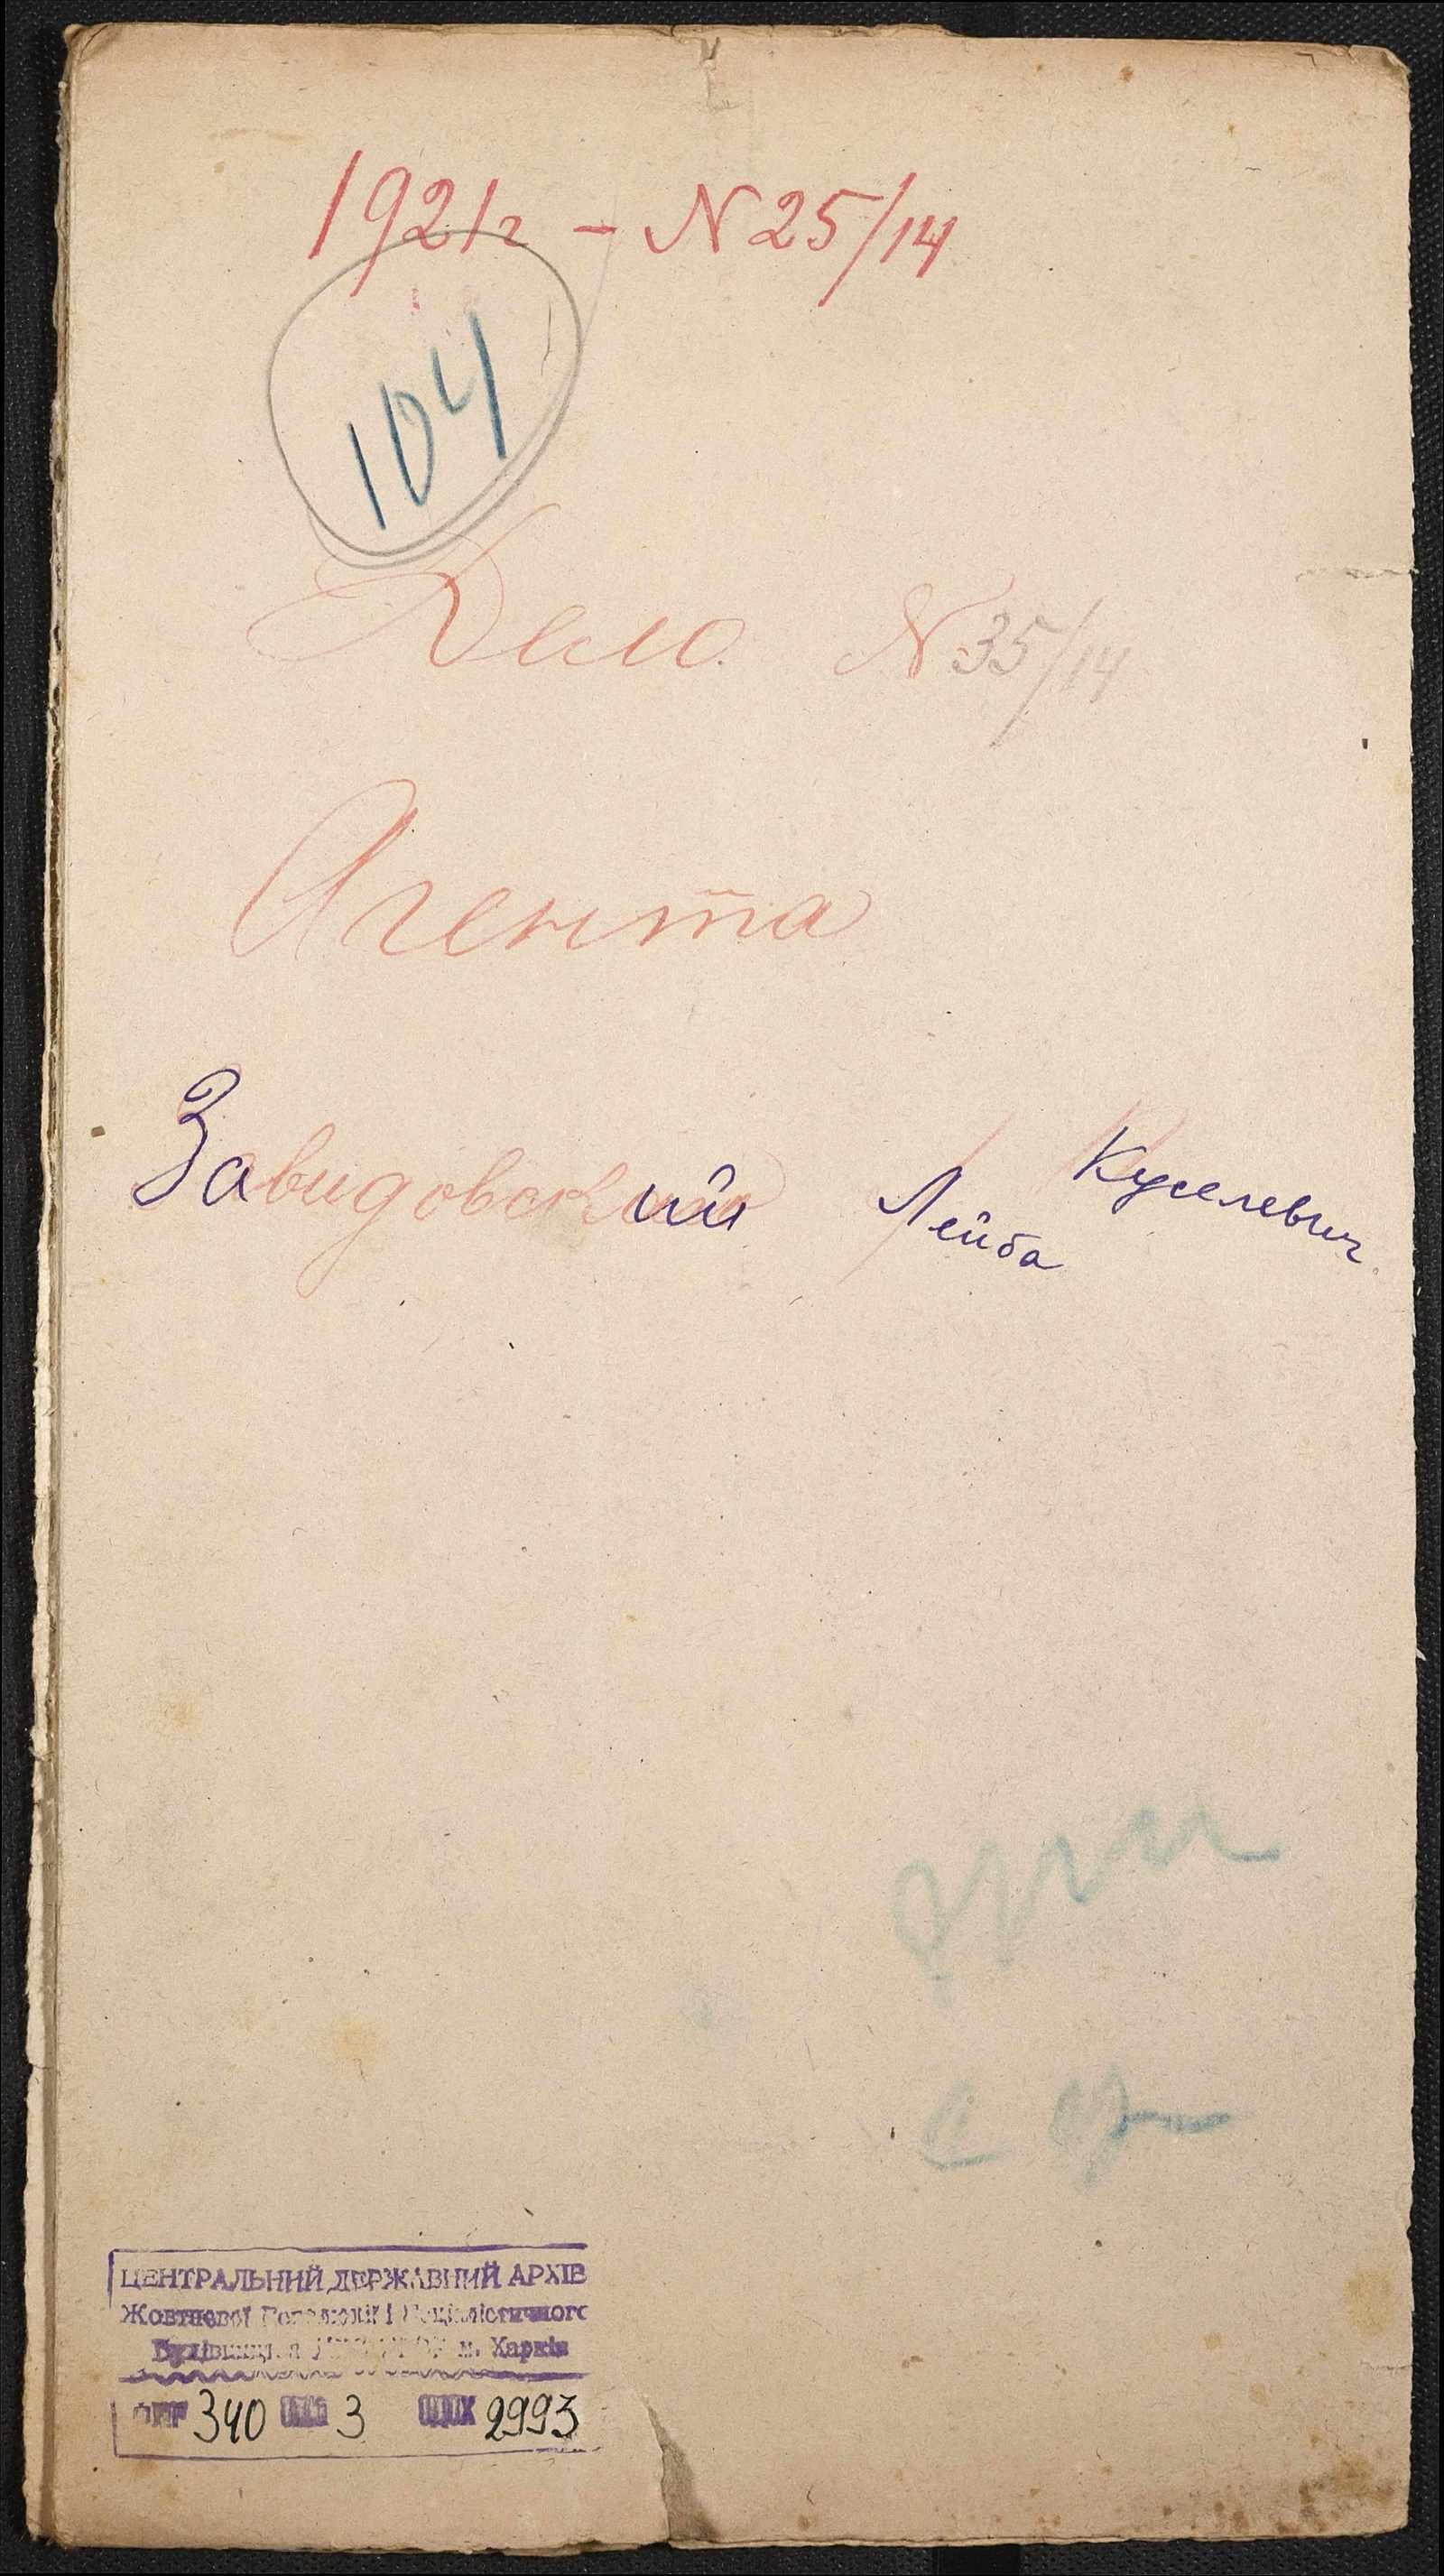 1921г - N 25/14
104
Дело N 35/14
Агента
Завидовский Лейба Куселевич
ЦЕНТРАЛЬНИЙ ДЕРЖАВНИЙ АРХІВ
Жовтневої Революції і Соціалістичного
Будівництва м. Харків
340 3 2993